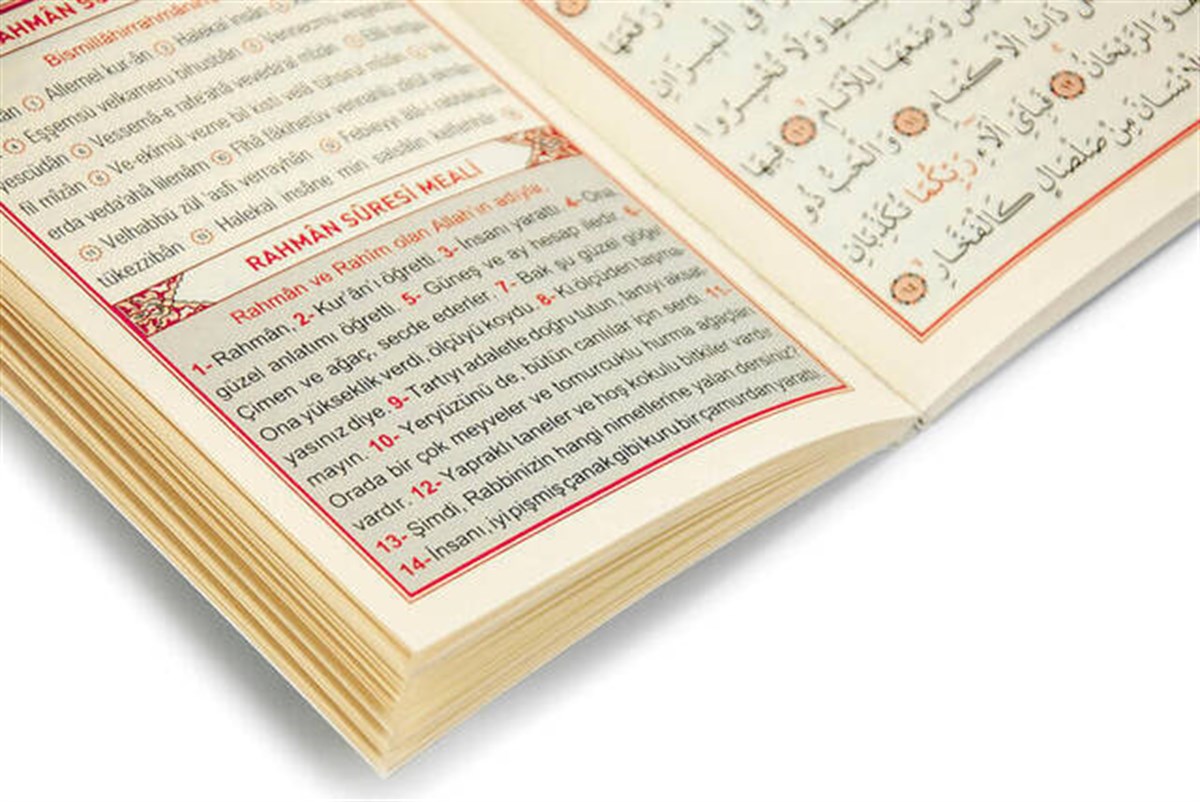 RAHMÂN SÛ
Bismillâhirrahmânirra
Allemel kur'ân 2 Halekal insân 3
4 Eşşemsü velkameru bihusbân 5 Vennecmü
yescüdân 6 Vessemâ-e rafe'ahâ vevedaal mîzân 7
fil mîzân 8 Ve-ekîmül vezne bil kıstı velâ tuhsirul mîzân 9
erda veda'ahâ lilenâm 10 Fîhâ fâkihetüv vennahlü zâtül ekmâm
11 Velhabbu zül 'asfi verrayhân 12 Febieyyi âlâi rabbikümâ
tükezzibân 13 Halekal insâne min salsâlin kelfehhâr 14
RAHMÂN SÛRESİ MEALİ
Rahmân ve Rahîm olan Allah'ın adıyla,
1- Rahmân, 2- Kur'ân'ı öğretti. 3- İnsanı yarattı. 4- Ona
güzel anlatımı öğretti. 5- Güneş ve ay hesap iledir. 6-
Çimen ve ağaç, secde ederler. 7- Bak şu güzel göğe
Ona yükseklik verdi, ölçüyü koydu. 8- Ki ölçüden taşma-
yasınız diye. 9- Tartıyı adaletle doğru tutun, tartıyı aksat-
mayın. 10- Yeryüzünü de, bütün canlılar için serdi. 11-
Orada bir çok meyveler ve tomurcuklu hurma ağaçları
vardır. 12- Yapraklı taneler ve hoş kokulu bitkiler vardır
13- Şimdi, Rabbinizin hangi nimetlerine yalan dersiniz?
14- İnsanı, iyi pişmiş çanak gibi kuru bir çamurdan yarattı.
رَفَعَهَا
وَلَا تُخْسِرُوا الْمِيزَانَ
وَضَعَهَا لِلْاَنَامِ ١٠ فِيهَا
ذَاتُ الْاَكْمَامِ ١١ وَالْحَبُّ ذُو
وَالرَّيْحَانُ ١٢ فَبِاَيِّ اٰلَٓاءِ رَبِّكُمَا تُكَذِّبَانِ
الْاِنْسَانَ مِنْ صَلْصَالٍ كَالْفَخَّارِ ١٤